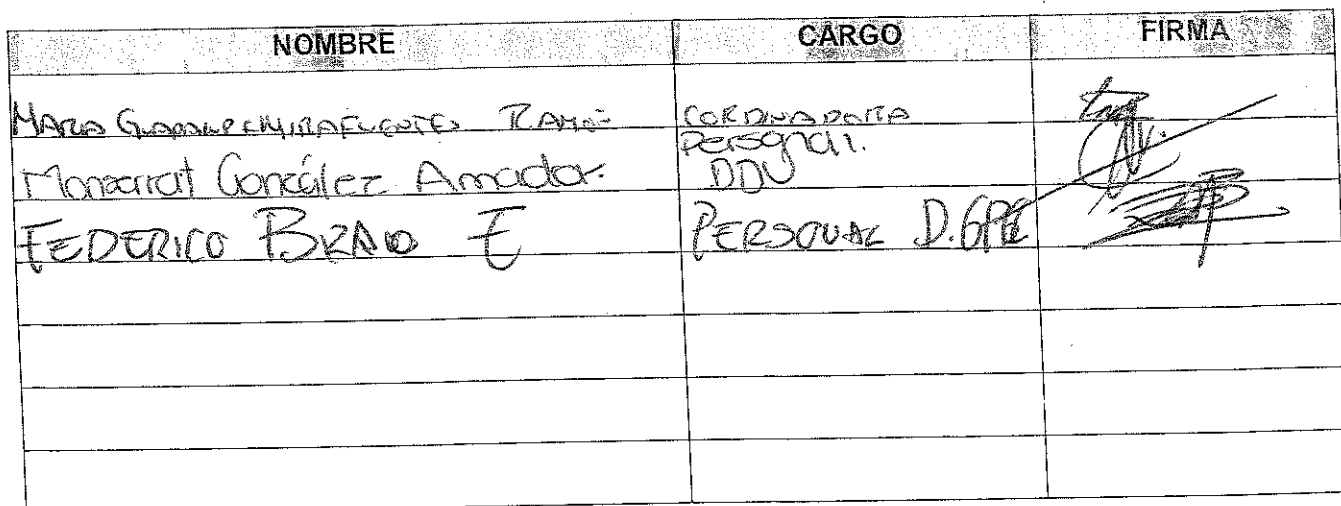 NOMBRE CARGO FIRMA
MARIA GUADALUPE MIRAFUENTES RAMON CORDINADORA
Monserrat González Amador. Personal. DDU
FEDERICO BRAVO E PERSONAL D.